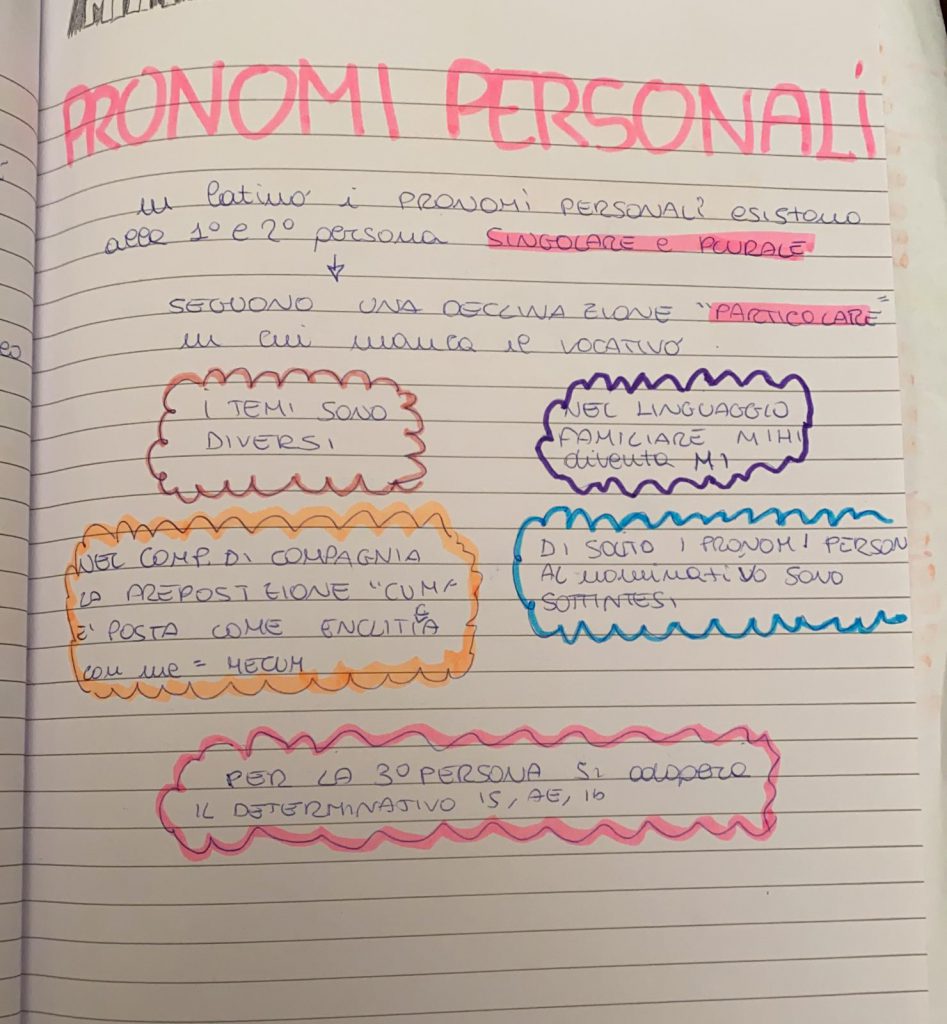 PRONOMI PERSONALI
in latino i PRONOMI PERSONALI esistono
alla 1º e 2º persona SINGOLARE e PLURALE
↓
SEGUONO UNA DECLINAZIONE "PARTICOLARE"
in cui manca il VOCATIVO
I TEMI SONO
DIVERSI
NEL LINGUAGGIO
FAMILIARE MIHI
diventa MI
NEL COMP. DI COMPAGNIA
LA PREPOSIZIONE "CUM"
E' POSTA COME ENCLITICA
con me = MECUM
DI SOLITO I PRONOMI PERSON
AL nominativo SONO
SOTTINTESI
PER LA 3º PERSONA SI adopera
IL DETERMINATIVO IS, AE, ID